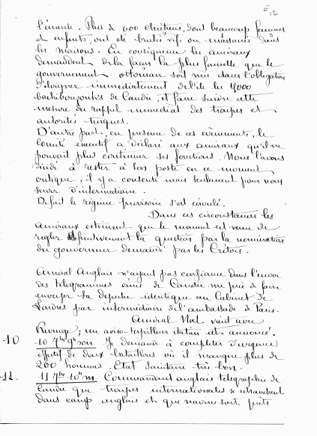 l'émeute. Plus de 400 chrétiens, dont beaucoup femmes
et enfants, ont été brûlés vifs ou massacrés dans
les maisons. En conséquence les amiraux
demandent de la façon la plus formelle que le
gouvernement ottoman soit mis dans l'obligation
d'éloigner immédiatement de l'île les 4,000
bachibouzouks de Candie, et faire suivre cette
mesure du rappel immédiat des troupes et
autorités turques.
D'autre part, en présence de ces événements, le
Comité exécutif a déclaré aux amiraux qu'il ne
pouvait plus continuer ses fonctions. Nous l'avons
à rester à son poste en ce moment
critique, il y a consenti mais seulement pour nous
servir d'intermédiaire.
De fait le régime provisoire s'est écroulé.
Dans ces circonstances les
Amiraux estiment que le moment est venu de
régler définitivement la question par la nomination
du gouverneur demandé par les Crétois.
Amiral Anglais n'ayant pas confiance dans l'envoi
des télégrammes émis de Candie me prie de faire
envoyer la dépêche identique au Cabinet de
Londres par intermédiaire de l'ambassade de Paris.
Amiral
Rouge; un aviso-torpilleur italien est annoncé.
10
10 7bre soir. Je demande à compléter d'urgence
effectif de deux bataillons où il manque plus de
200 hommes. Etat sanitaire très bon.
11
11 7bre 10h m Commandant anglais télégraphie de
Candie que troupes internationales se
dans camp anglais et que navires sont prêts